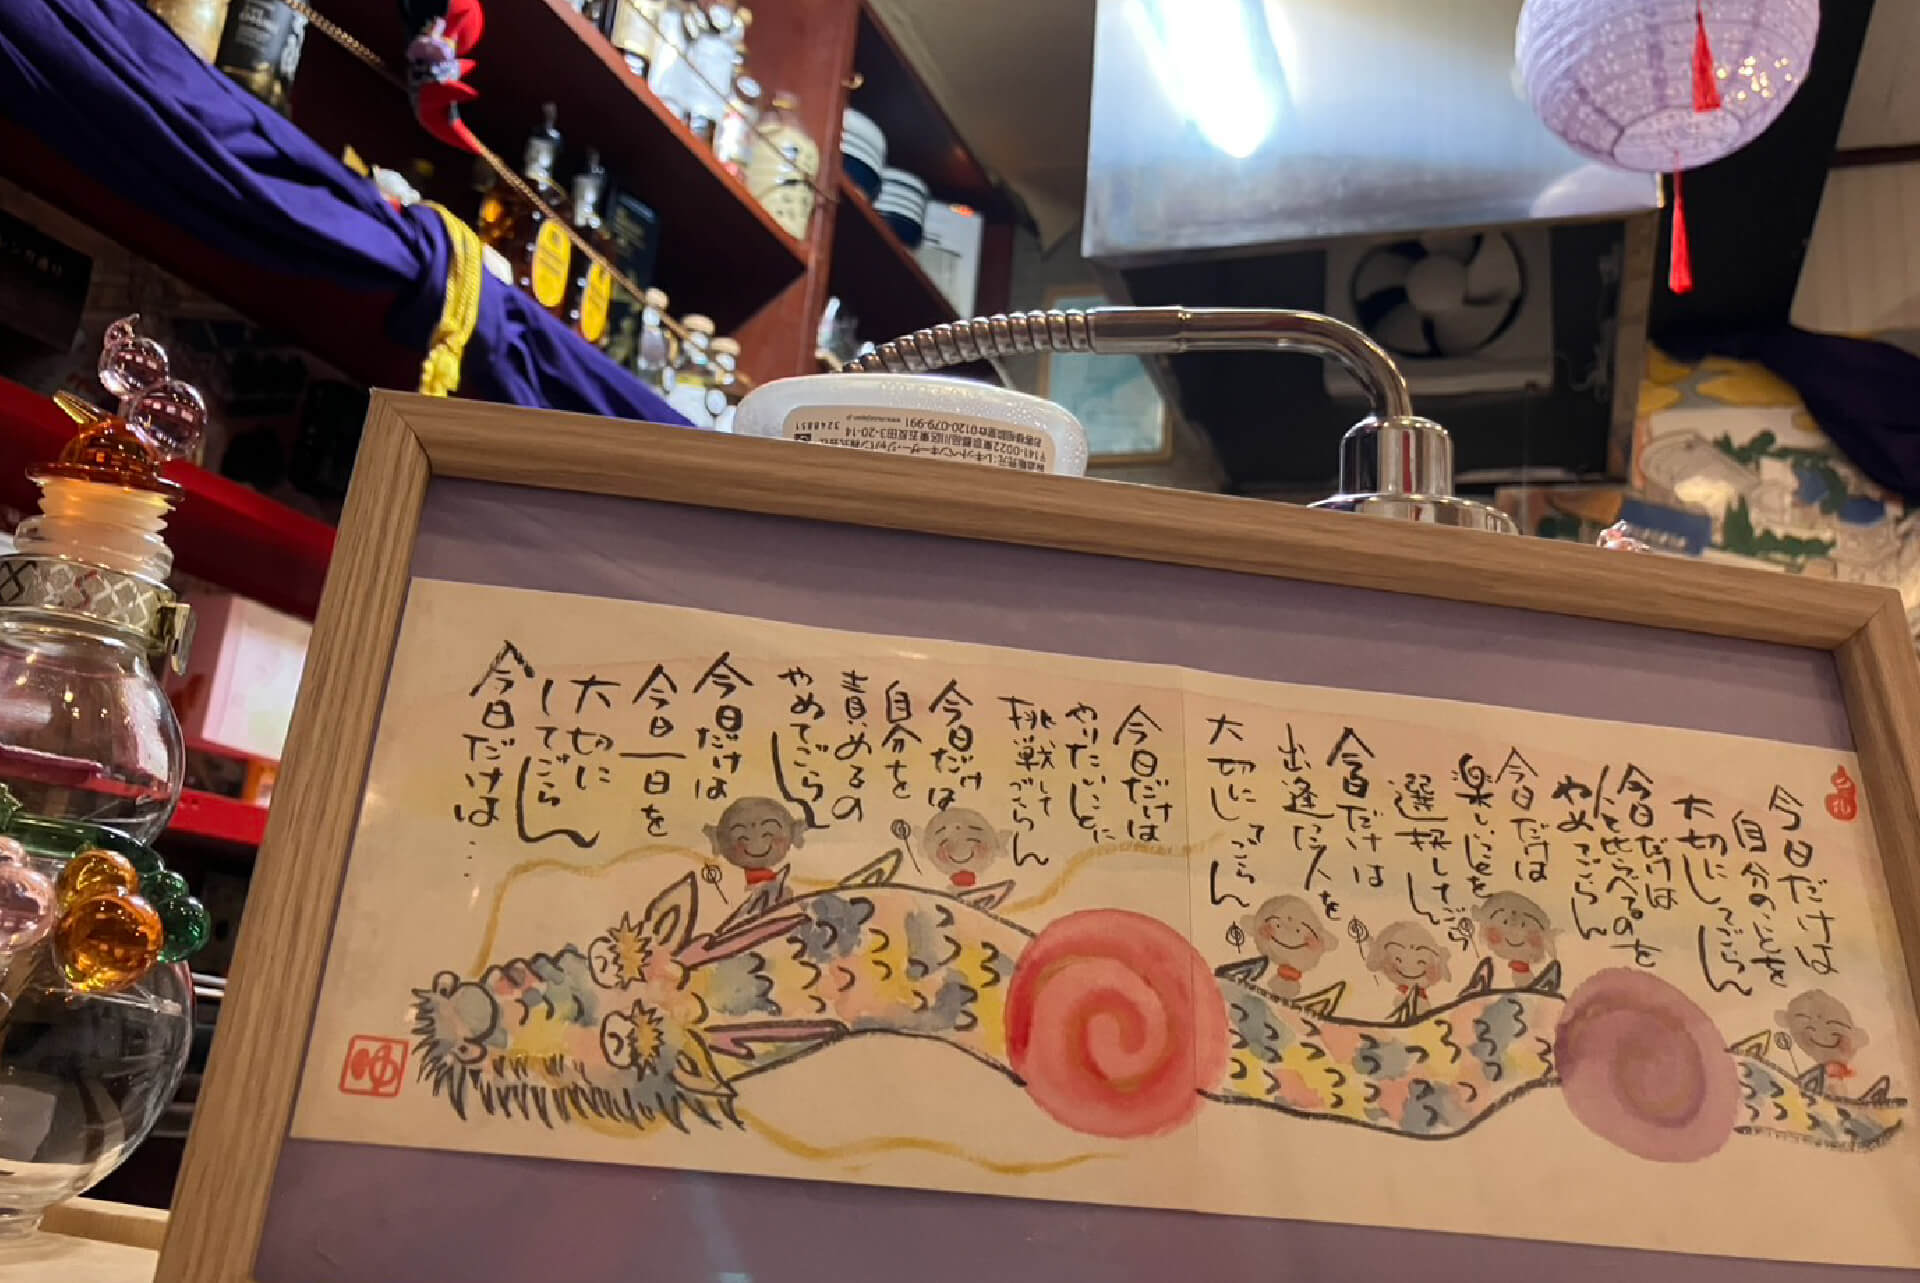 今日だけは
自分のことを
大切にしてごらん
今日だけは
人と比べるのを
やめてごらん
今日だけは
楽しいことを
選択してごらん
今日だけは
出逢った人を
大切にしてごらん
今日だけは
やりたいことに
挑戦してごらん
今日だけは
自分を
責めるの
やめてごらん
今日だけは
今日一日を
大切に
してごらん
今日だけは…
製造販売元:レキットベンキーザー・ジャパン株式会社
〒141-0022東京都品川区東五反田3-20-14
お客様相談室☎0120-079-991
3248851